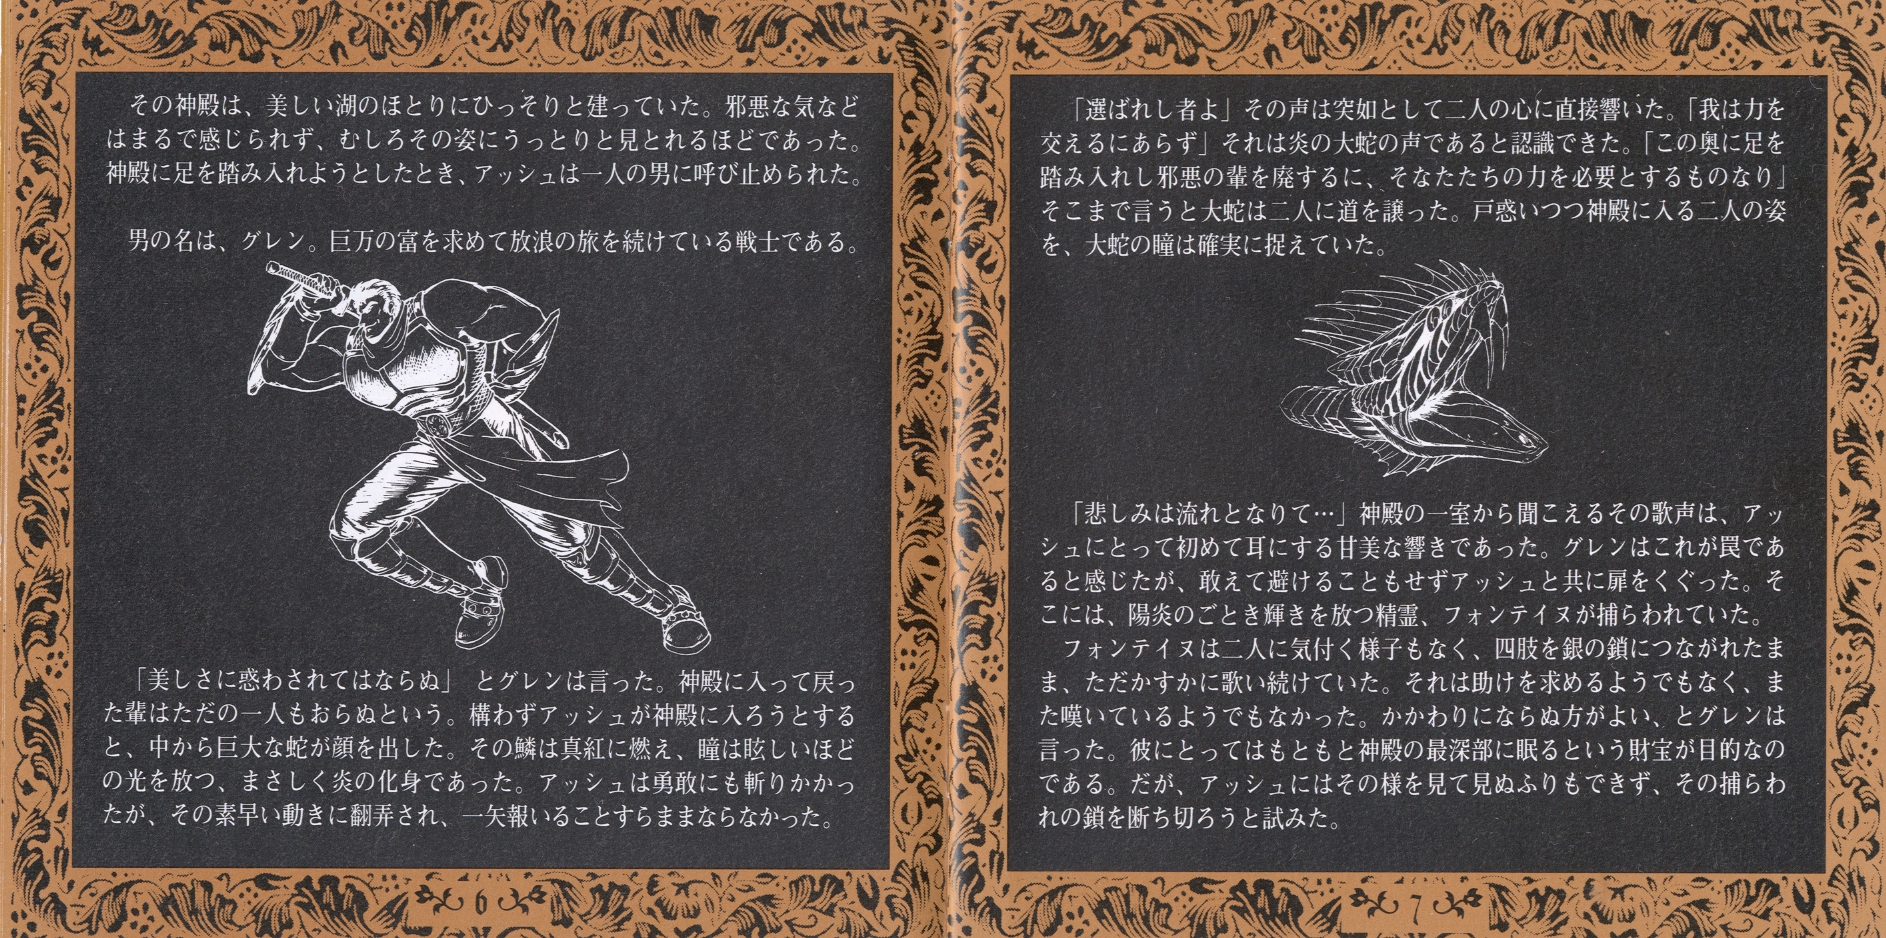 その神殿は、美しい湖のほとりにひっそりと建っていた。邪悪な気など
はまるで感じられず、むしろその姿にうっとりと見とれるほどであった。
神殿に足を踏み入れようとしたとき、アッシュは一人の男に呼び止められた。
男の名は、グレン。巨万の富を求めて放浪の旅を続けている戦士である。
「美しさに惑わされてはならぬ」 とグレンは言った。神殿に入って戻っ
た輩はただの一人もおらぬという。構わずアッシュが神殿に入ろうとする
と、中から巨大な蛇が顔を出した。その鱗は真紅に燃え、瞳は眩しいほど
の光を放つ、まさしく炎の化身であった。アッシュは勇敢にも斬りかかっ
たが、その素早い動きに翻弄され、一矢報いることすらままならなかった。
6
「選ばれし者よ」その声は突如として二人の心に直接響いた。「我は力を
交えるにあらず」それは炎の大蛇の声であると認識できた。「この奥に足を
踏み入れし邪悪の輩を廃するに、そなたたちの力を必要とするものなり」
そこまで言うと大蛇は二人に道を譲った。戸惑いつつ神殿に入る二人の姿
を、大蛇の瞳は確実に捉えていた。
「悲しみは流れとなりて…」神殿の一室から聞こえるその歌声は、アッ
シュにとって初めて耳にする甘美な響きであった。グレンはこれが罠であ
ると感じたが、敢えて避けることもせずアッシュと共に扉をくぐった。そ
こには、陽炎のごとき輝きを放つ精霊、フォンテイヌが捕らわれていた。
フォンテイヌは二人に気付く様子もなく、四肢を銀の鎖につながれたま
ま、ただかすかに歌い続けていた。それは助けを求めるようでもなく、ま
た嘆いているようでもなかった。かかわりにならぬ方がよい、とグレンは
言った。彼にとってはもともと神殿の最深部に眠るという財宝が目的なの
である。だが、アッシュにはその様を見て見ぬふりもできず、その捕らわ
れの鎖を断ち切ろうと試みた。
7